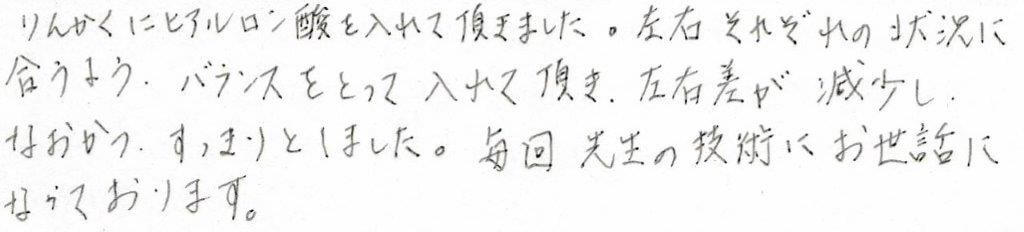 りんかくにヒアルロン酸を入れて頂きました。左右それぞれの状況に
合うよう、バランスをとって入れて頂き、左右差が減少し、
なおかつ、すっきりとしました。毎回先生の技術にお世話に
なっております。